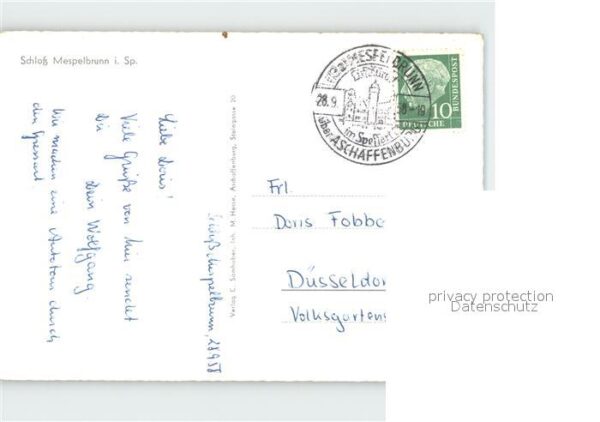 Schloß Mespelbrunn i. Sp.
Schloßmespelbrunn, 28.9.58
Liebe Doris!
Viele Grüße von hier sendet
Dir
Dein Wolfgang.
Wir machen eine Autotour durch
den Spessart
Verlag E. Samhaber, Inh. M. Hesse, Aschaffenburg, Steingasse 20
MESPELBRUNN
28.9.
im Spessart
über ASCHAFFENBURG
10
DEUTSCHE
BUNDESPOST
Frl.
Doris Fobbe
Düsseldor
Volksgartens
privacy protection
Datenschutz